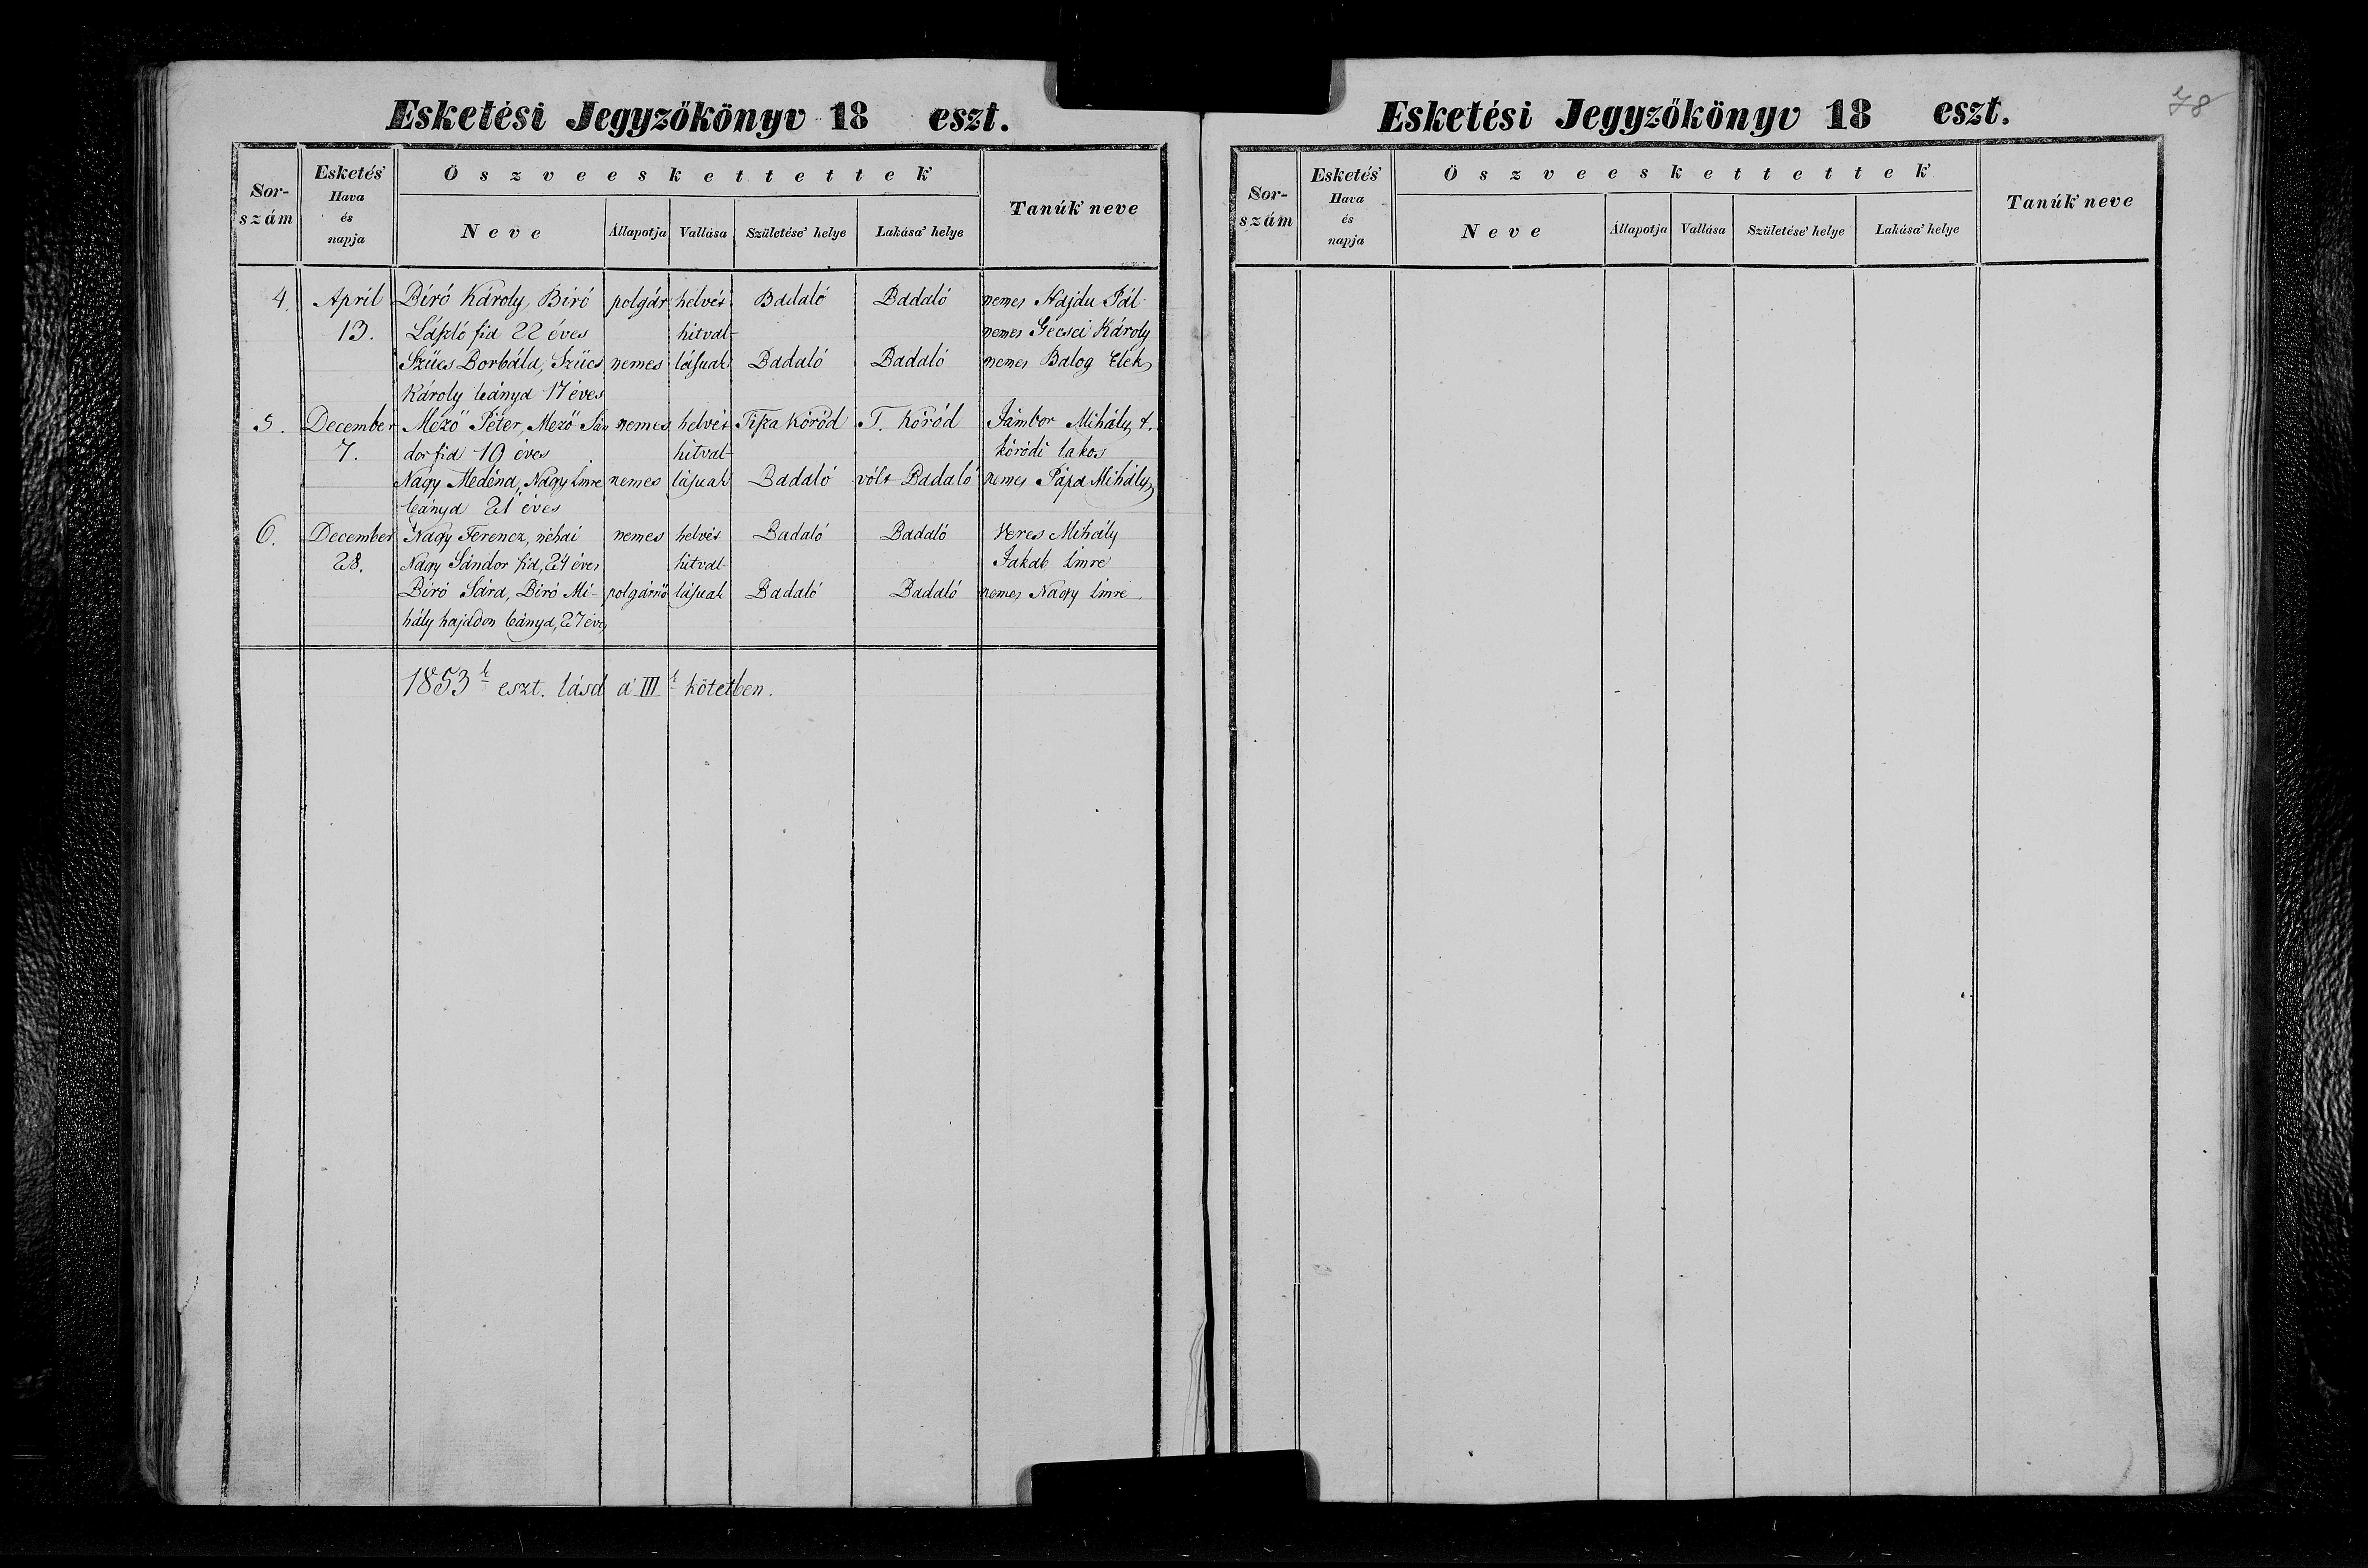 Esketési Jegyzőkönyv 18 eszt.
Sor-szám
Esketés' Hava és napja
Öszveeskettettek'
Neve
Állapotja
Vallása
Születése' helye
Lakása' helye
Tanúk' neve
4. April Biró Károly, Biró polgár helvét Badaló Badaló nemes Hajdu Pál
13. László fia 22 éves hitval- nemes Gecsei Károly
Szücs Borbála, Szücs nemes lásuak Badaló Badaló nemes Balog Elek
Károly leánya 17 éves
5. December Mező Péter, Mező Sán nemes helvét Tisza Kóród T. Kóród Jámbor Mihály, t.
7. dor fia 19 éves hitval- kóródi lakos
Nagy Imre nemes lásuak Badaló vólt Badaló nemes Pápa Mihály
leánya 21 éves
6. December Nagy Ferencz, néhai nemes helvét Badaló Badaló Veres Mihály
28. Nagy Sándor fia, 24 éves hitval- Jakab Imre
Biró Sára, Biró Mi- polgárnő lásuak Badaló Badaló nemes Nagy Imre
hály hajadon leánya, 27 éves
1853k eszt. lásd a' IIIk kötetben.
Esketési Jegyzőkönyv 18 eszt.
78
Sor-szám
Esketés' Hava és napja
Öszveeskettettek'
Neve
Állapotja
Vallása
Születése' helye
Lakása' helye
Tanúk' neve